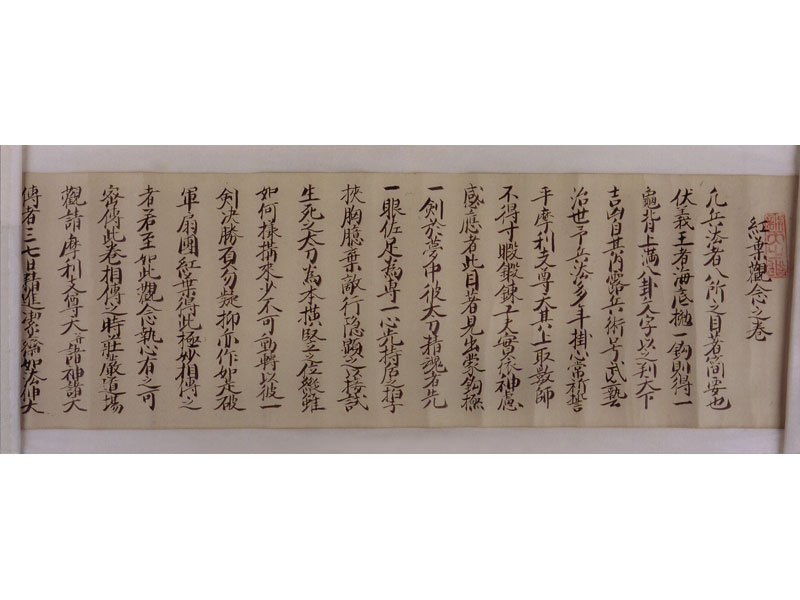 紅葉觀念之卷
凡兵法者八所之目著簡要也
伏義王者海底拋一鈎則得一
龜背上満八卦文字以之判天下
吉凶自其以降兵術号武藝
治世予兵法多年掛心常祈誓
平摩利支尊天其上取数師
不得寸暇鍛錬工夫實依神慮
感應者此目著見出蒙
一剣於夢中彼太刀精魂者先
一眼佐足為専一心先持
挾胸臆棄敵行隠顕之接試
生死之太刀為本横竪之位雖
如何様搆來少不可動轉以彼一
剣决勝負勿疑抑亦作如是破
軍扇團紅葉得此極妙相傳之
者若至如此觀念執心有之可
密傳此卷相傳之時莊嚴道場
觀請摩利支尊天并諸神諸天
傳者三七日精進潔齋如法